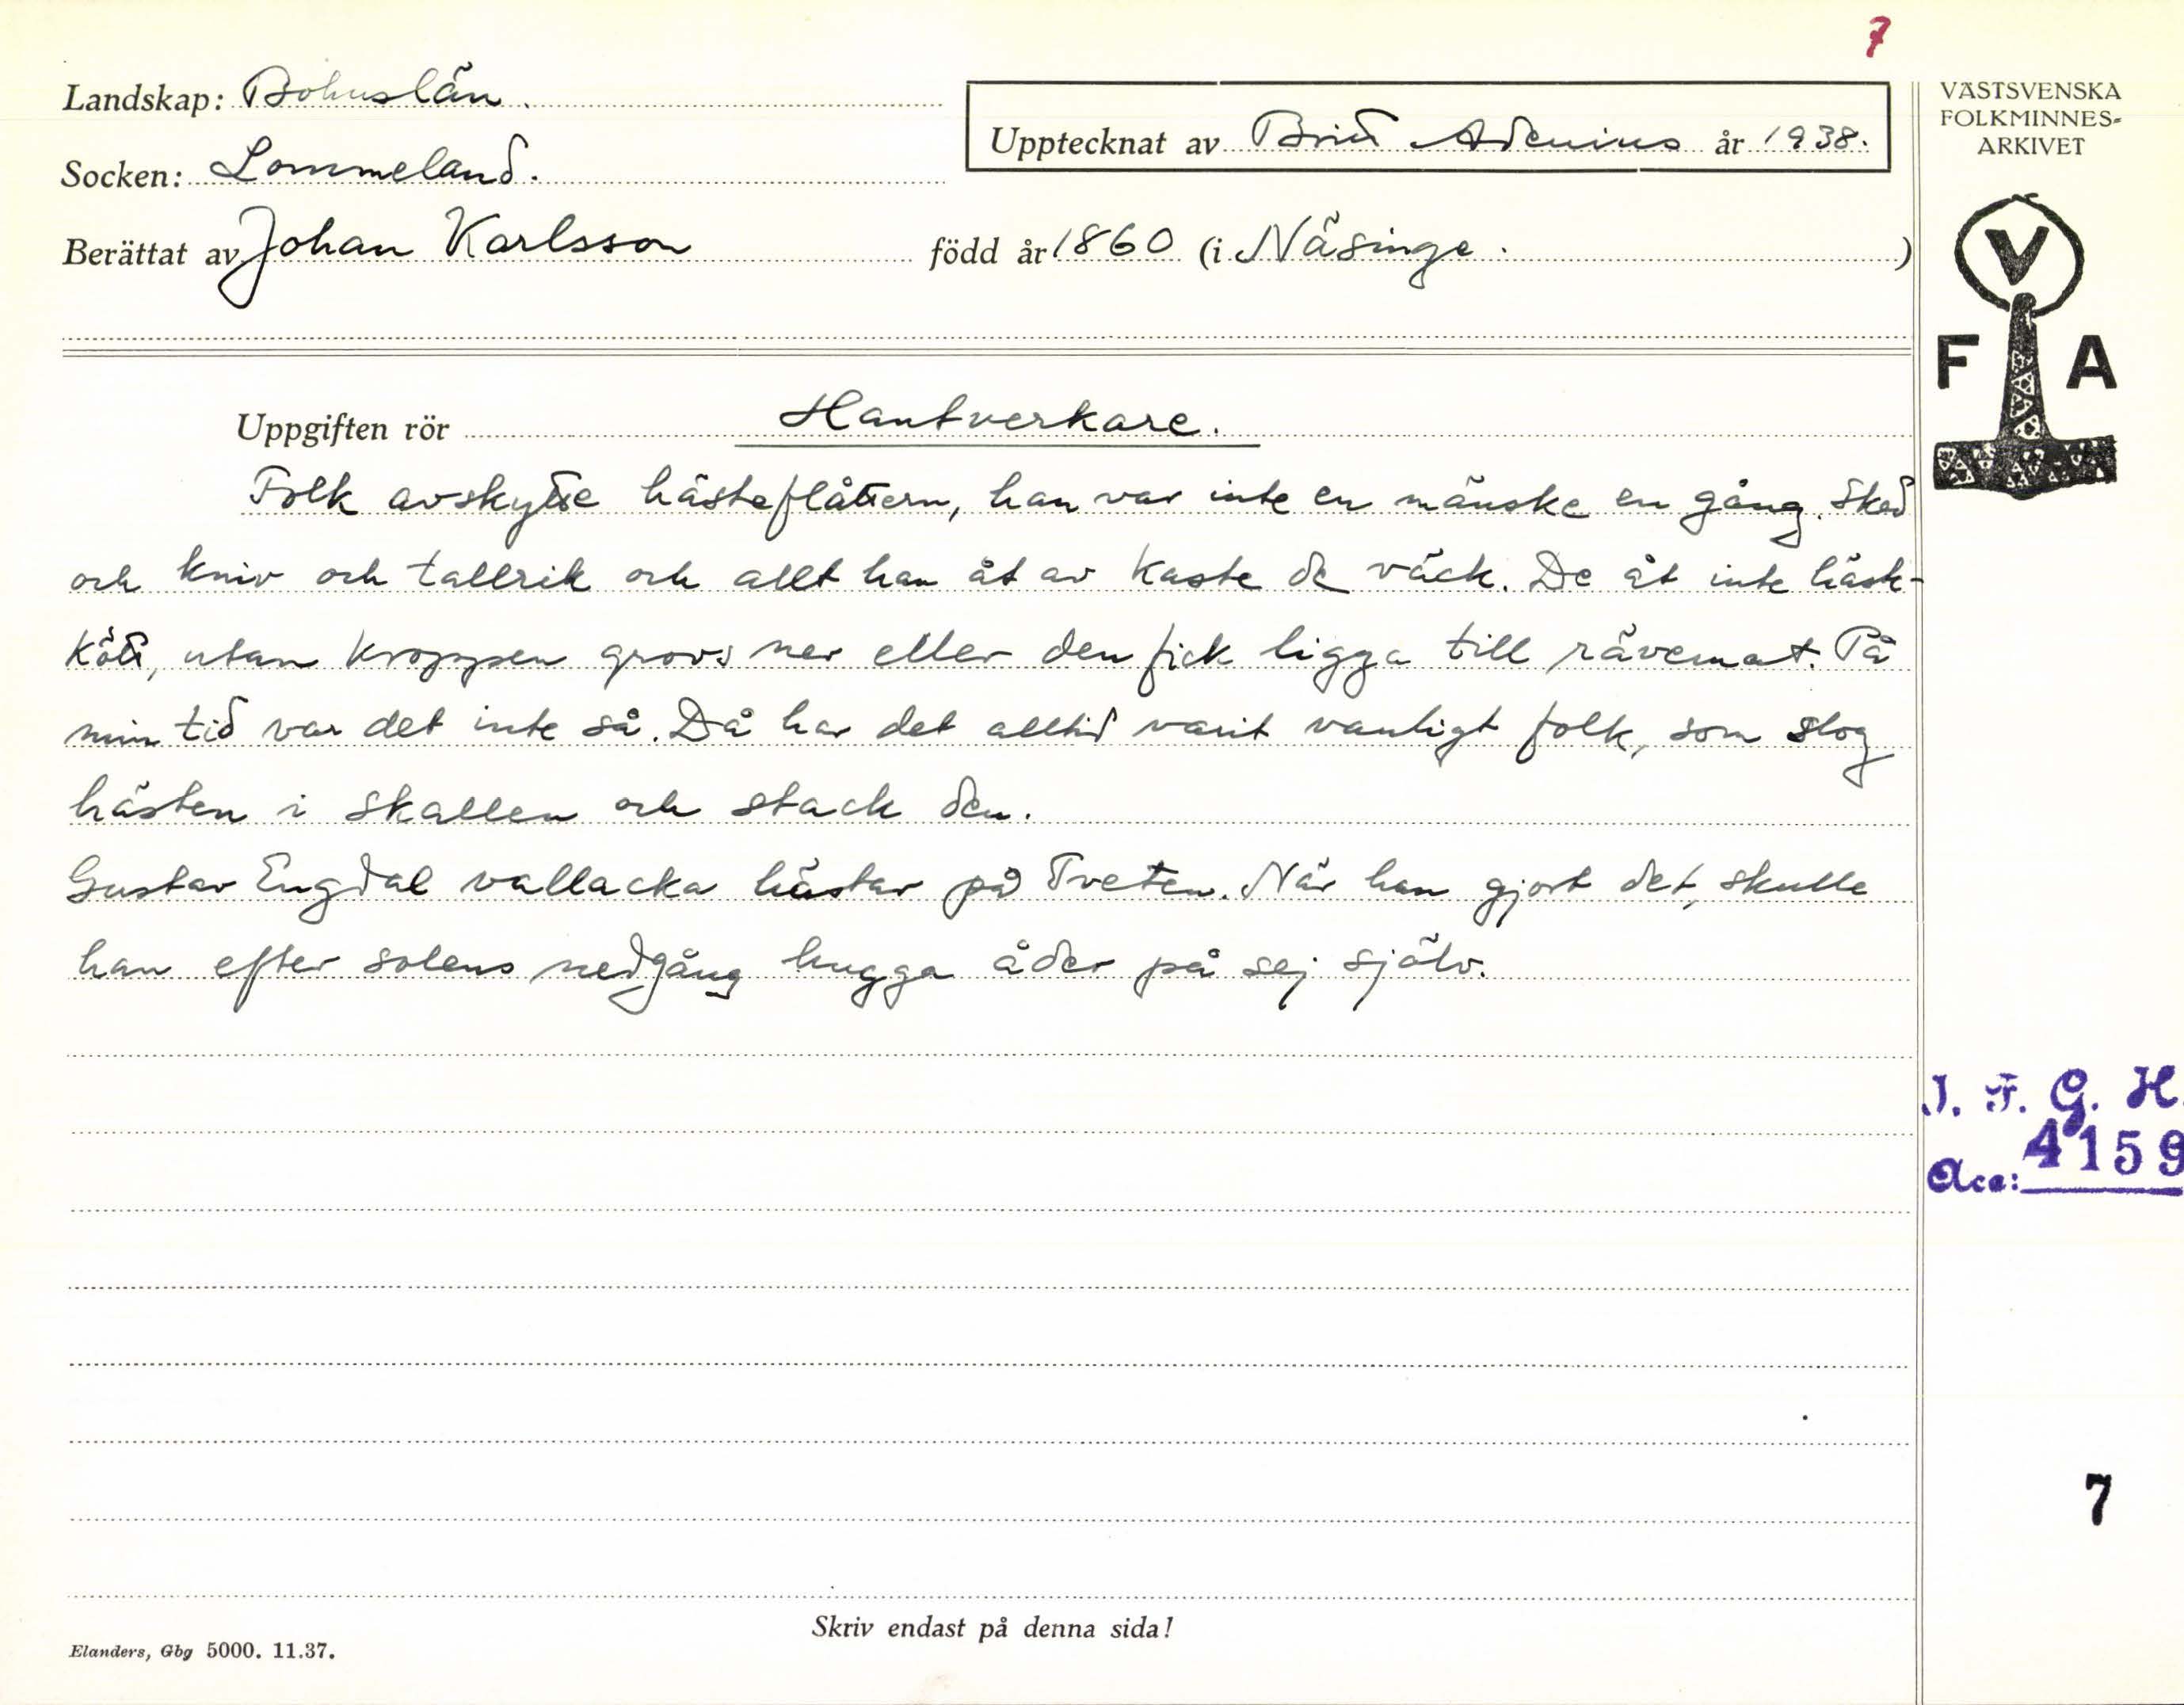 7
Landskap: Bohuslän.
Socken: Lommeland.
Upptecknat av Britt Adenius år 1938.
Berättat av Johan Karlsson född år 1860 (i Näsinge.)
VÄSTSVENSKA
FOLKMINNES-
ARKIVET
V
F A
Uppgiften rör Hantverkare.
Folk avskydde hästeflåttern, han var inte en mänske en gång. Sked
och kniv och tallrik och allt han åt av kaste de väck. De åt inte häst-
kött, utan kroppen grovs ner eller den fick ligga till rävemat. På
min tid var det inte så. Då har det alltid varit vanligt folk, som slog
hästen i skallen och stack den.
Gustav Engdal vallacka hästar på Tveten. När han gjort det, skulle
han efter solens nedgång hugga åder på sej själv.
I. F. G. H.
Acc: 4159
7
Skriv endast på denna sida!
Elanders, Gbg 5000. 11.37.